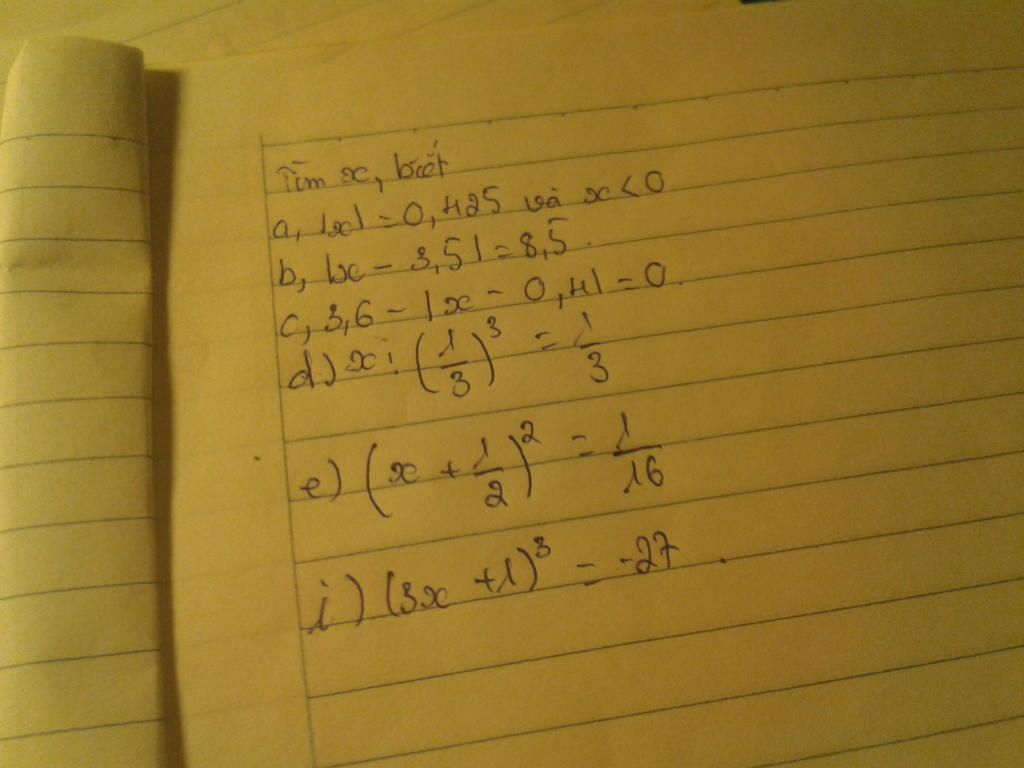 Tìm x, biết
a, |x| = 0,425 và x < 0
b, |x - 3,5| = 8,5.
c, 3,6 - |x - 0,4| = 0.
d.) x : (1/3)^3 = 1/3
e) (x + 1/2)^2 = 1/16
i) (3x + 1)^3 = -27.